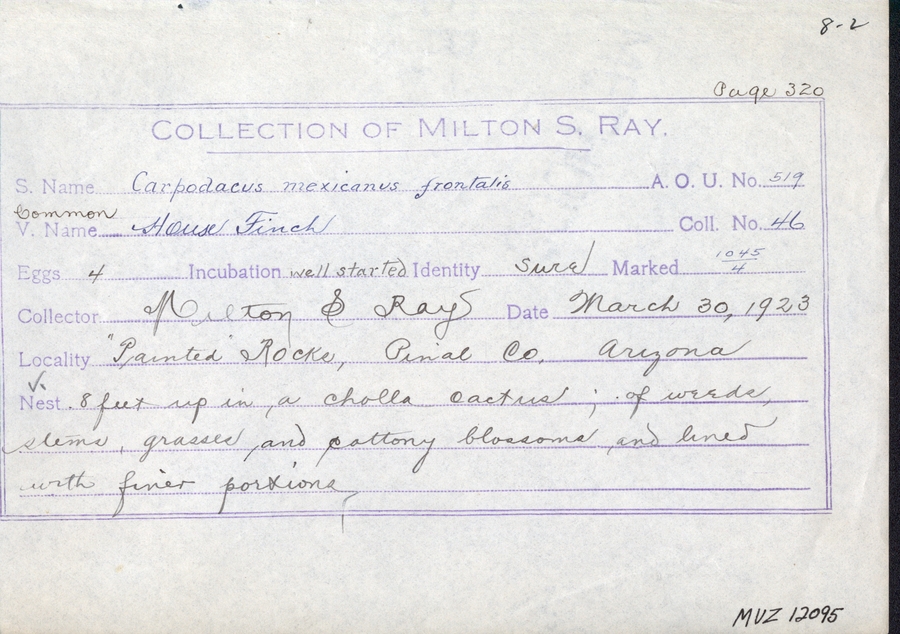 8-2
Page 320
COLLECTION OF MILTON S. RAY.
S. Name Carpodacus mexicanus frontalis A. O. U. No. 519
Common
V. Name House Finch Coll. No. 46
Eggs 4 Incubation well started Identity sure Marked 1045/4
Collector Milton S Ray Date March 30, 1923
Locality "Painted" Rocks, Pinal Co. Arizona
Nest 8 feet up in a cholla cactus; of weeds,
stems, grasses and cottony blossoms and lined
with finer portions
MVZ 12095